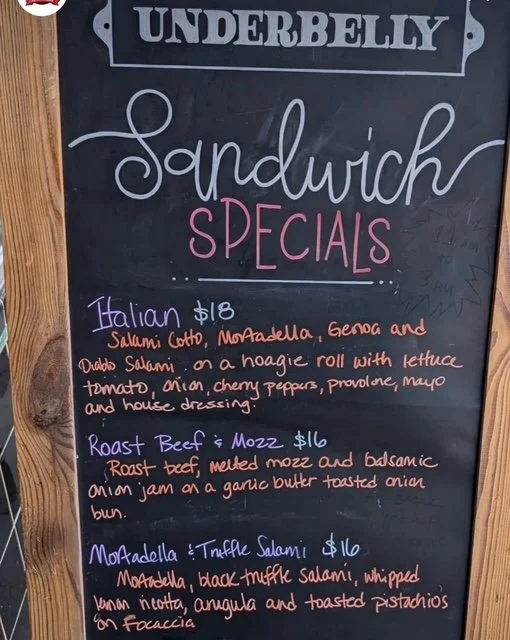 UNDERBELLY
Sandwich
SPECIALS
11 AM
TO
3 PM
Italian $18
Salami Cotto, Mortadella, Genoa and
Diablo Salami. on a hoagie roll with lettuce
tomato, onion, cherry peppers, provolone, mayo
and house dressing.
Roast Beef & Mozz $16
Roast beef, melted mozz and balsamic
onion jam on a garlic butter toasted onion
bun.
Mortadella & Truffle Salami $16
Mortadella, black truffle salami, whipped
lemon ricotta, arugula and toasted pistachios
on Focaccia